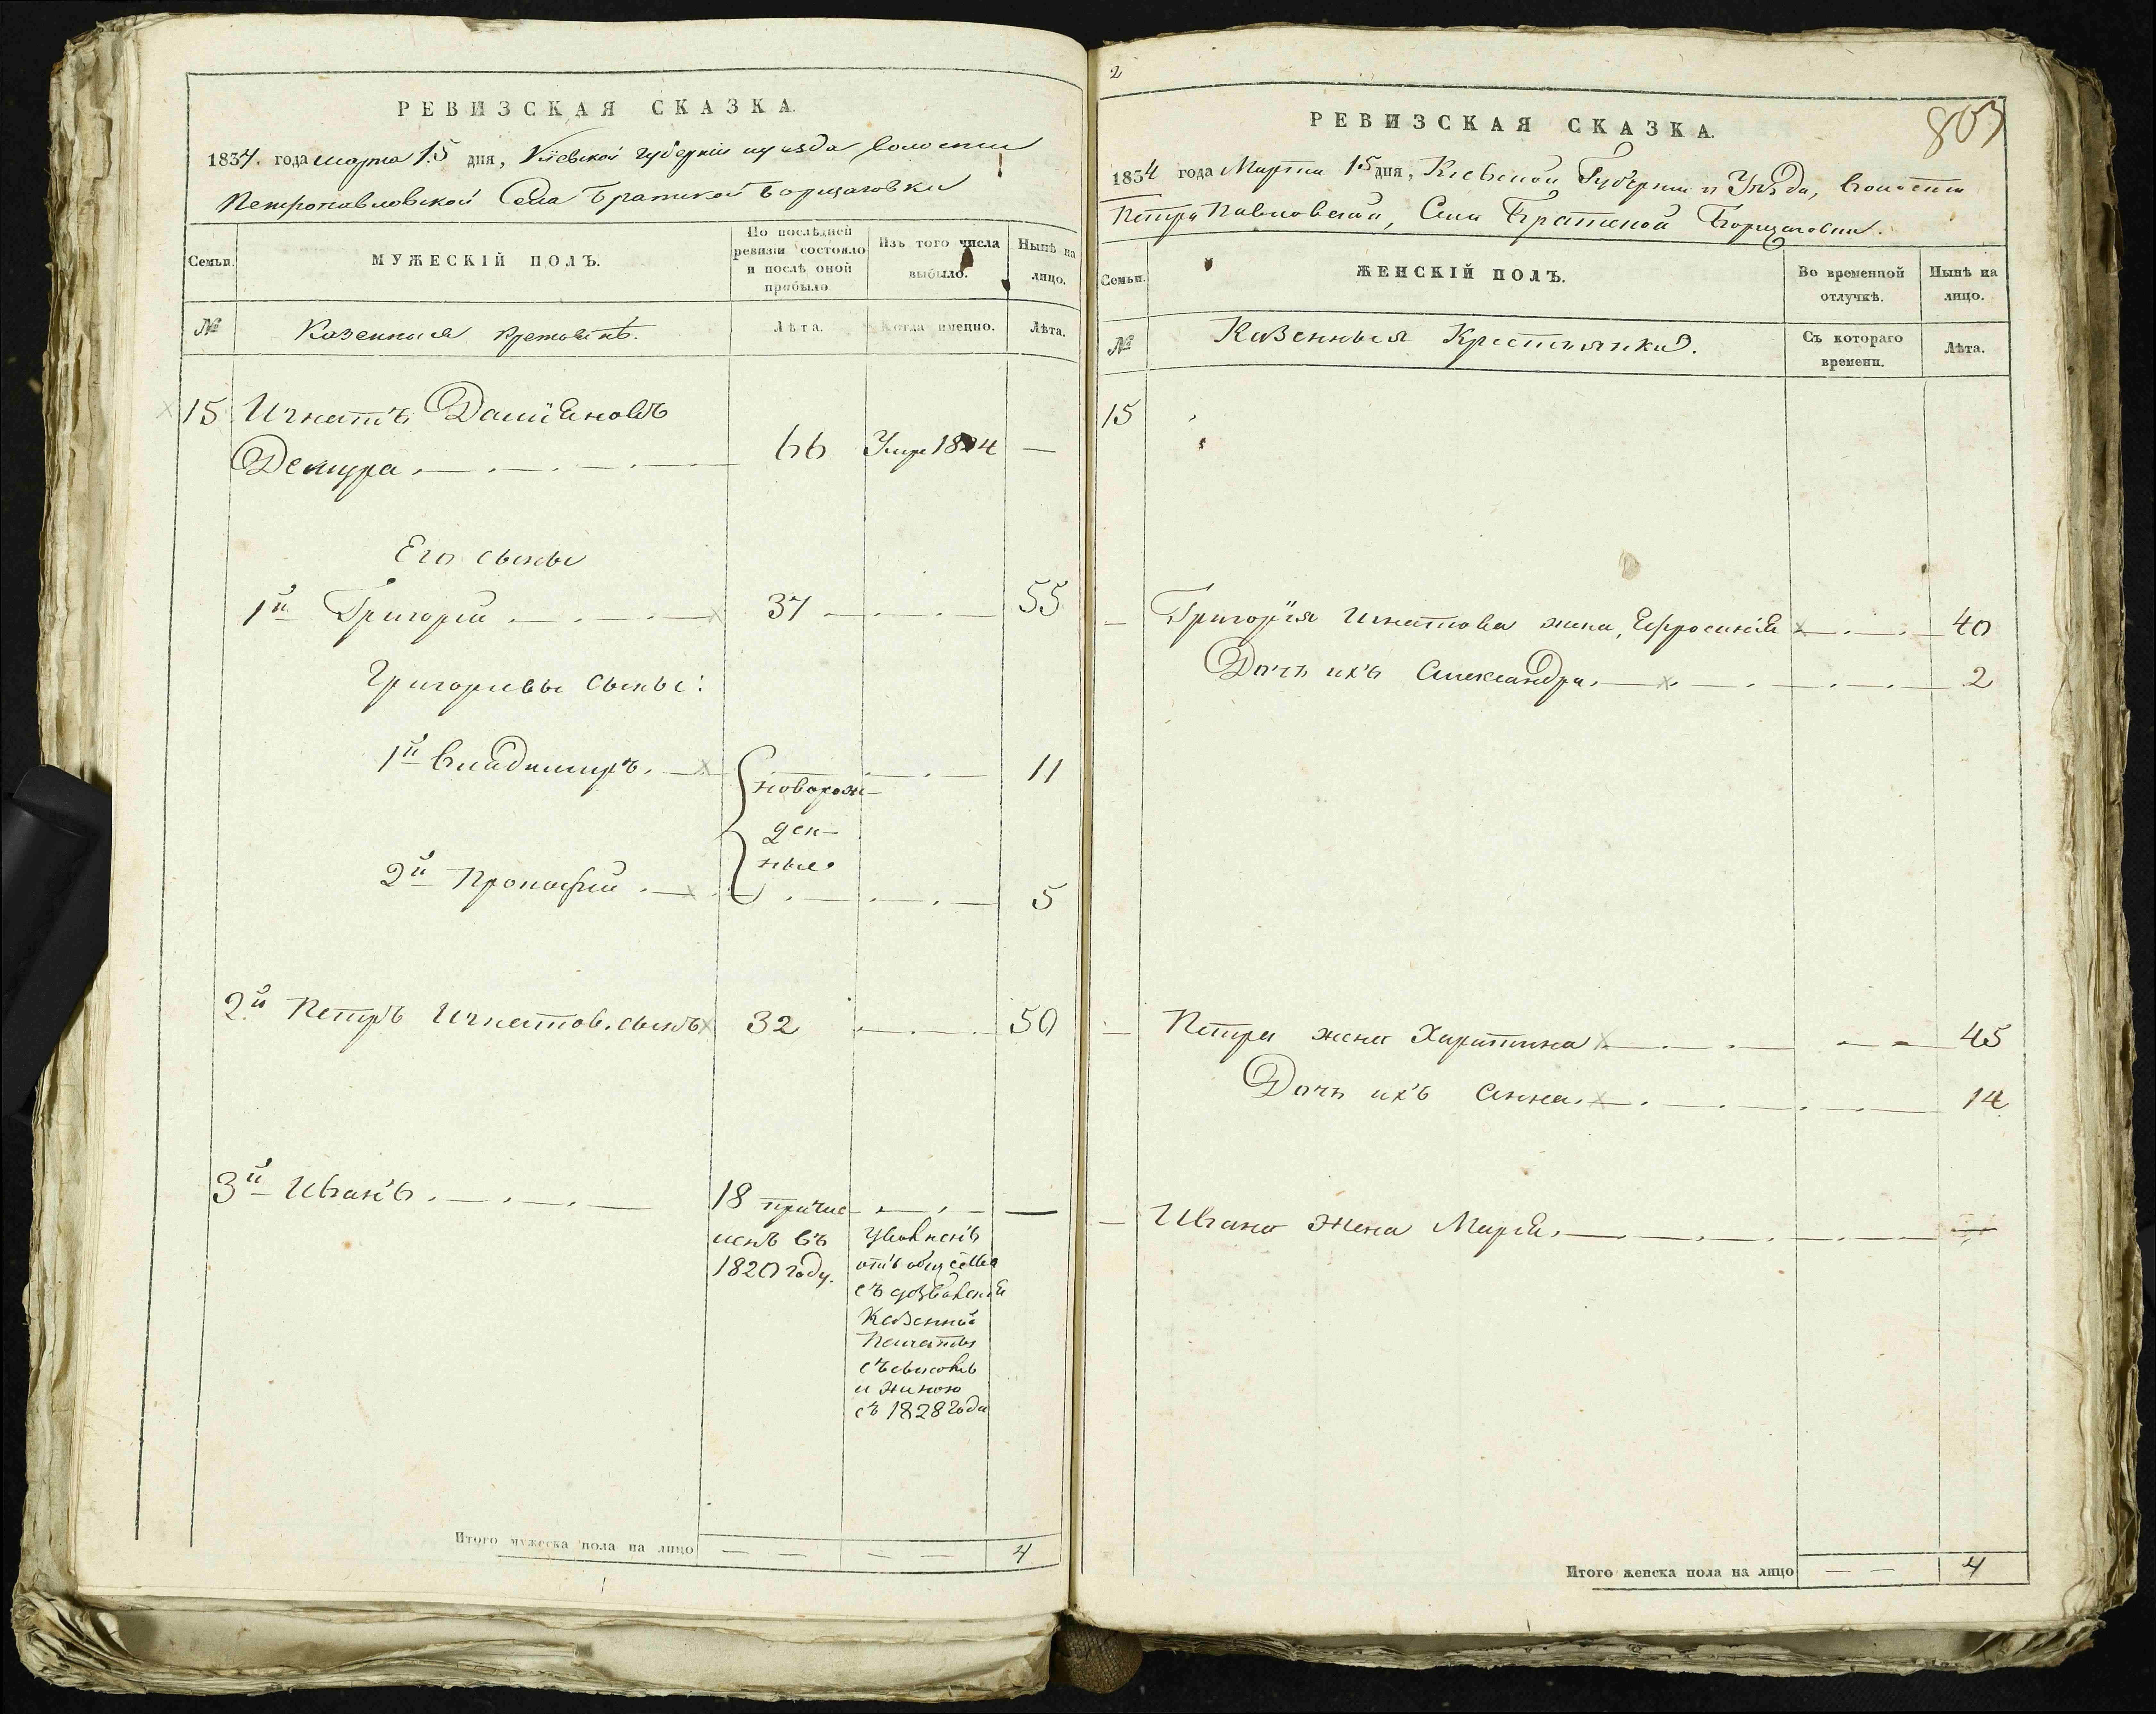 РЕВИЗСКАЯ СКАЗКА.
1834. года марта 15 дня, Кіевской губерніи и уезда волости
Петропавловской Села Братской Борщаговки
Семьи.
МУЖЕСКІЙ ПОЛЪ.
По послѣдней ревизіи состояло и послѣ оной прибыло
Изъ того числа выбыло.
Нынѣ на лицо.
№
Казенныя
Лѣта.
Когда именно.
Лѣта.
15 Игнатъ Даміѣновъ
Демура 66 Умре 1824 —
Его сыны
1й Григорій 37 55
Григорievы сыны:
1й Владимиръ. 11
новорож-
ден-
ные.
2й Прокофій 5
2й Петръ Игнатов. сынъ 32 50
3й Иванъ 18 причис- —
ленъ въ
1820 году.
Уволненъ
отъ общества
съ дозволенія
Казенной
Палаты
съ сыномъ
и женою
съ 1828 года
Итого мужеска пола на лицо — — — — 4
2
803
РЕВИЗСКАЯ СКАЗКА.
1834 года Марта 15 дня, Кіевской Губерніи и Уѣзда, волости
Петра Павловской, Села Братской Борщаговки.
Семьи.
ЖЕНСКІЙ ПОЛЪ.
Во временной отлучкѣ.
Нынѣ на лицо.
№
Казенныя Крестьянки.
Съ котораго времени.
Лѣта.
15
— Григорія Игнатова жена, Ефросинія 40
Дочь ихъ Александра. 2
— Петра жена Харитина 45
Дочь ихъ Анна. 14
— Ивана жена Марія. —
Итого женска пола на лицо — — 4